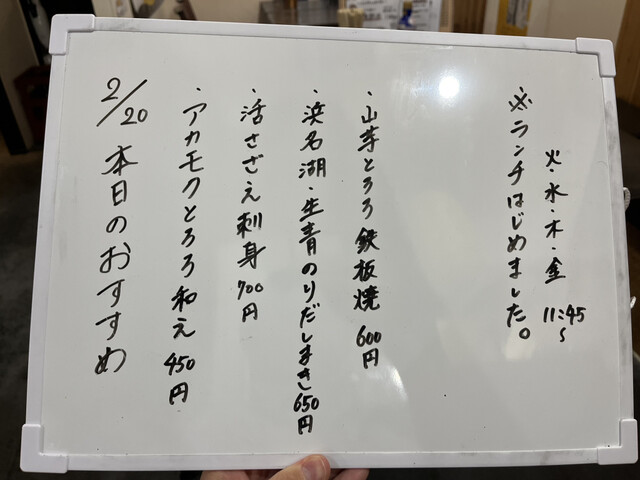 2/20 本日のおすすめ
・アカモクとろろ和え 450円
・活さざえ刺身 700円
・浜名湖・生青のりだしまき 650円
・山芋とろろ鉄板焼 600円
※ランチはじめました。
火・水・木・金 11:45〜